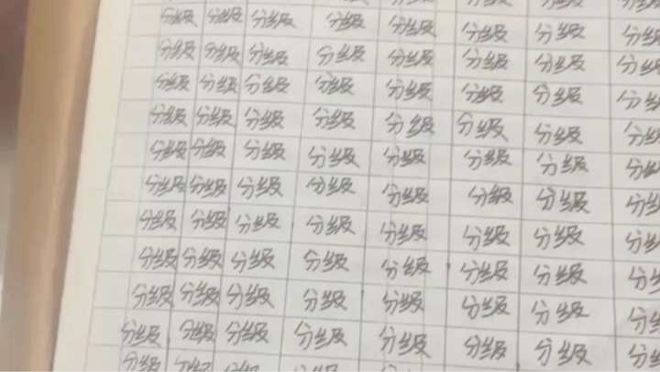 分级 分级 分级 分级 分级 分级 分级 分级
分级 分级 分级 分级 分级 分级 分级 分级
分级 分级 分级 分级 分级 分级 分级 分级
分级 分级 分级 分级 分级 分级 分级 分级
分级 分级 分级 分级 分级 分级 分级 分级
分级 分级 分级 分级 分级 分级 分级 分级
分级 分级 分级 分级 分级 分级 分级 分级
分级 分级 分级 分级 分级 分级 分级 分级
分级 分级 分级 分级 分级 分级 分级 分级
分级 分级 分级 分级 分级 分级 分级 分级
分级 分级 分级 分级 分级 分级 分级